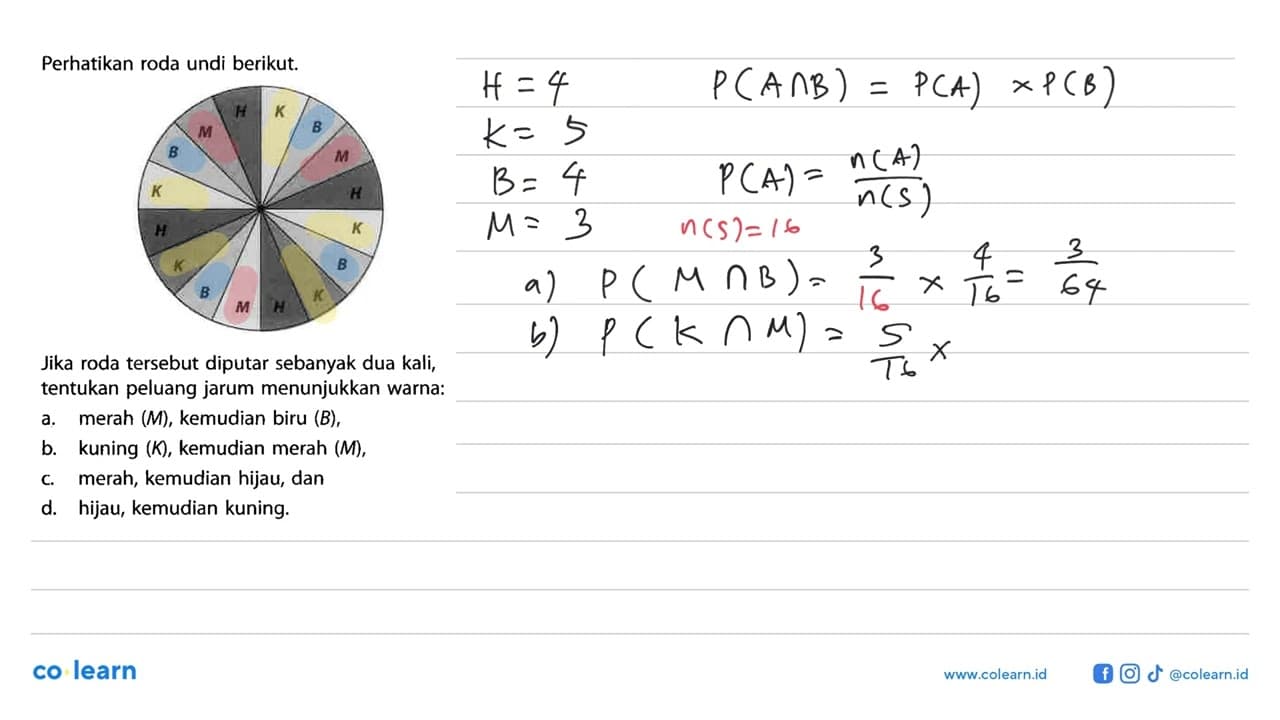 Perhatikan roda undi berikut.
H K
M B
B M
K H
H K
K B
B K
M H
Jika roda tersebut diputar sebanyak dua kali,
tentukan peluang jarum menunjukkan warna:
a. merah (M), kemudian biru (B),
b. kuning (K), kemudian merah (M),
c. merah, kemudian hijau, dan
d. hijau, kemudian kuning.
H = 4
K = 5
B = 4
M = 3
P(A∩B) = P(A) × P(B)
P(A) = n(A)/n(S)
n(S) = 16
a) P(M∩B) = 3/16 × 4/16 = 3/64
b) P(K∩M) = 5/16 ×
co learn
www.colearn.id
@colearn.id